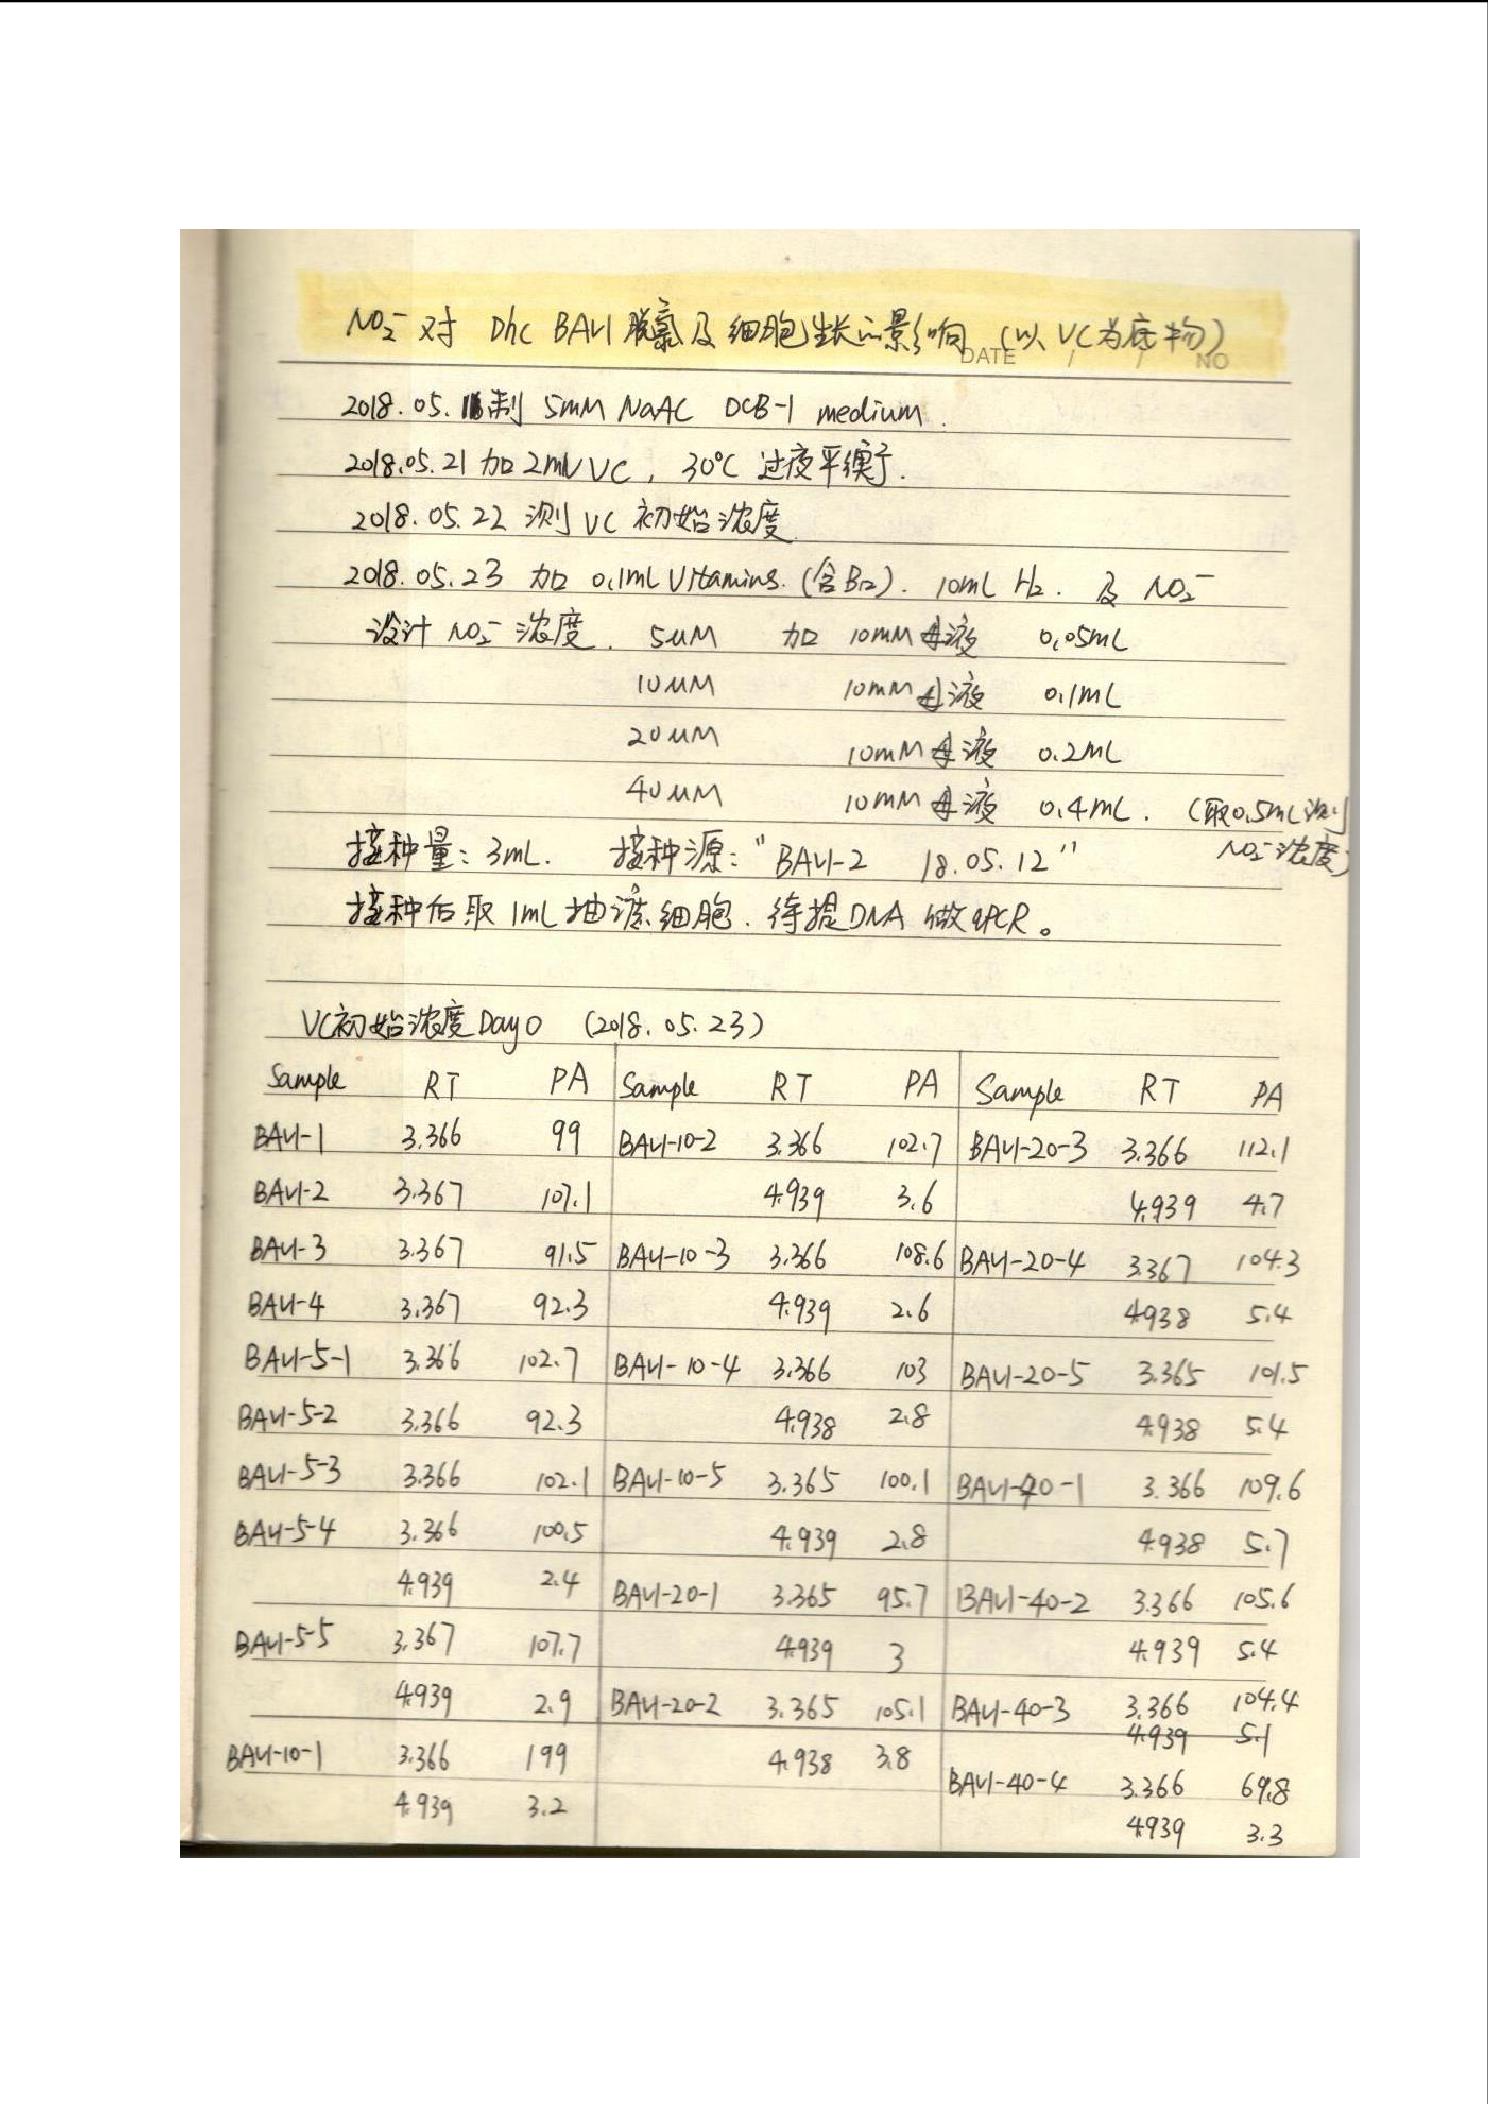 NO₂⁻ 对 Dhc BAV1 脱氯及细胞生长的影响 (以VC为底物)
DATE / / NO
2018.05.16 制 5mM NaAC DCB-1 medium.
2018.05.21 加 2ml VC, 30℃ 过夜平衡.
2018.05.22 测 VC 初始浓度
2018.05.23 加 0.1mL Vitamins (含B12). 10mL H₂. 及 NO₂⁻
设计 NO₂⁻ 浓度. 5uM 加 10mM 母液 0.05mL
10uM 10mM 母液 0.1mL
20uM 10mM 母液 0.2mL
40uM 10mM 母液 0.4mL. (取0.5mL测
NO₂⁻浓度)
接种量: 3mL. 接种源: "BAV1-2 18.05.12"
接种后取 1mL 抽滤细胞. 待提DNA 做qPCR。
VC初始浓度 Day0 (2018.05.23)
Sample RT PA Sample RT PA Sample RT PA
BAV1-1 3.366 99 BAV1-10-2 3.366 102.7 BAV1-20-3 3.366 112.1
BAV1-2 3.367 107.1 4.939 3.6 4.939 4.7
BAV1-3 3.367 91.5 BAV1-10-3 3.366 108.6 BAV1-20-4 3.367 104.3
BAV1-4 3.367 92.3 4.939 2.6 4.938 5.4
BAV1-5-1 3.366 102.7 BAV1-10-4 3.366 103 BAV1-20-5 3.365 101.5
BAV1-5-2 3.366 92.3 4.938 2.8 4.938 5.4
BAV1-5-3 3.366 102.1 BAV1-10-5 3.365 100.1 BAV1-40-1 3.366 109.6
BAV1-5-4 3.366 100.5 4.939 2.8 4.938 5.7
4.939 2.4 BAV1-20-1 3.365 95.7 BAV1-40-2 3.366 105.6
BAV1-5-5 3.367 107.7 4.939 3 4.939 5.4
4.939 2.9 BAV1-20-2 3.365 105.1 BAV1-40-3 3.366 104.4
4.939 5.1
BAV1-10-1 3.366 199 4.938 3.8 BAV1-40-4 3.366 69.8
4.939 3.2 4.939 3.3